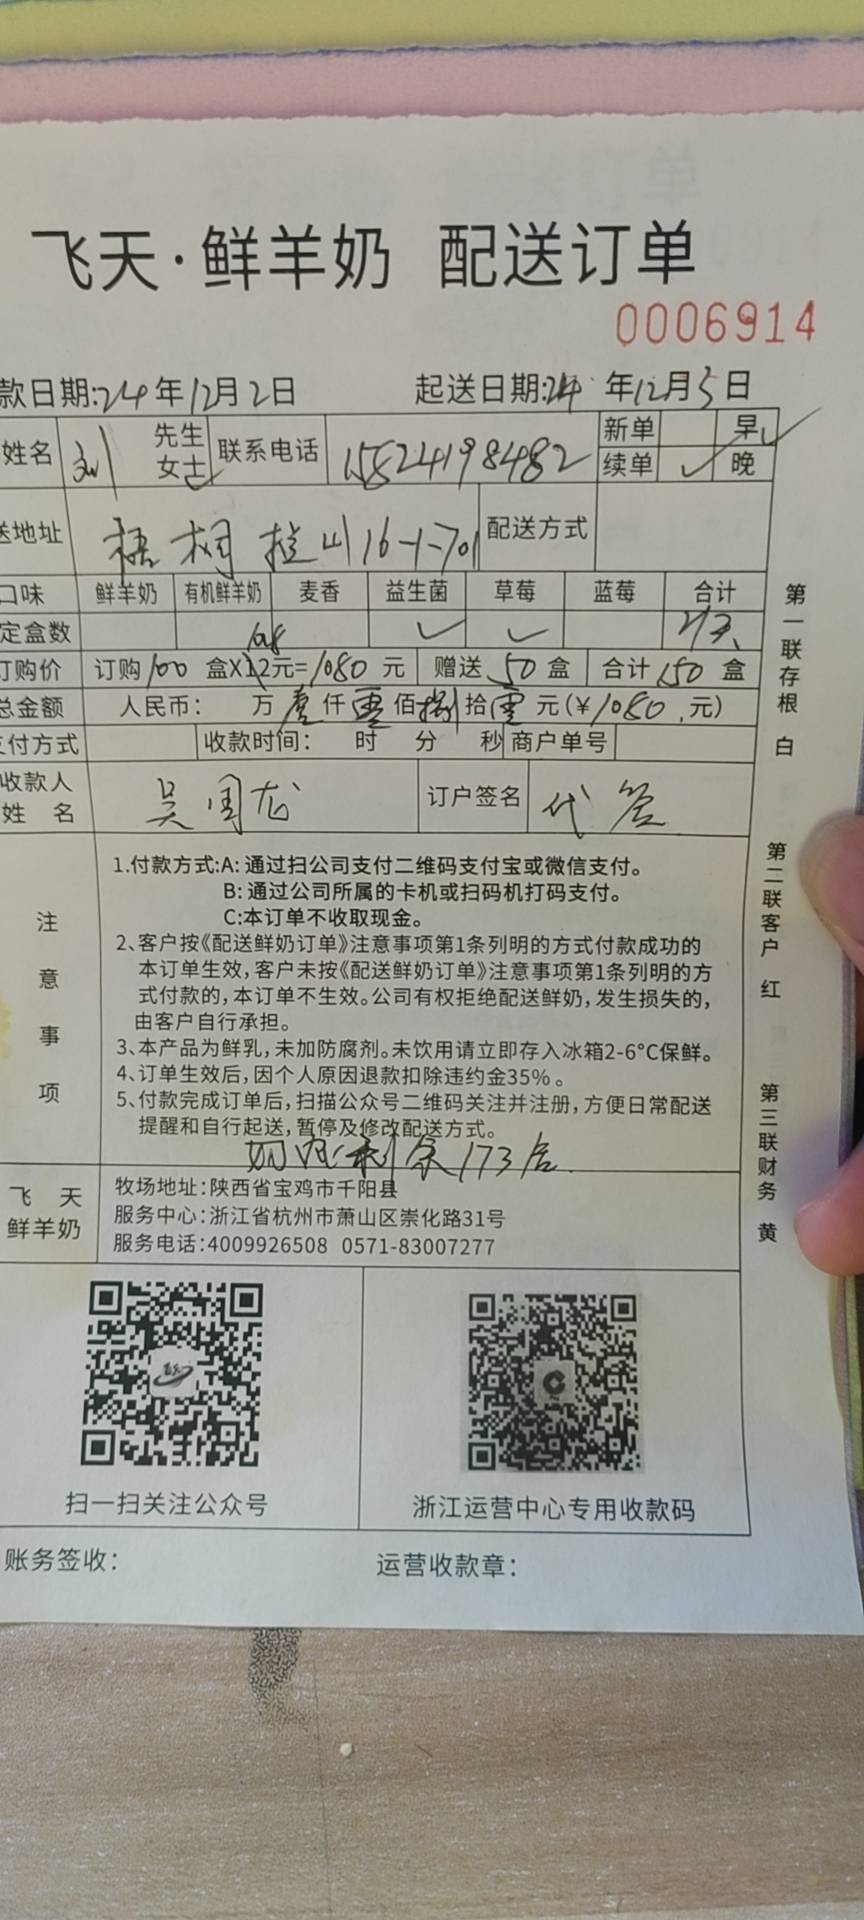 飞天·鲜羊奶 配送订单
0006914
款日期:24年12月2日 起送日期:24年12月5日
姓名 刘 先生 女士 联系电话 15824198482 新单 早
续单 ✓ 晚
送地址 梧桐 16-1-701 配送方式
口味 鲜羊奶 有机鲜羊奶 麦香 益生菌 草莓 蓝莓 合计
定盒数 10.8 ✓ ✓
订购价 订购100盒X12元=1080元 赠送50盒 合计150盒
总金额 人民币: 万壹仟零佰捌拾零元(¥1080.元)
支付方式 收款时间: 时 分 秒 商户单号
收款人
姓 名 吴国龙 订户签名 代签
注意事项
1.付款方式:A: 通过扫公司支付二维码支付宝或微信支付。
B: 通过公司所属的卡机或扫码机打码支付。
C:本订单不收取现金。
2、客户按《配送鲜奶订单》注意事项第1条列明的方式付款成功的
本订单生效,客户未按《配送鲜奶订单》注意事项第1条列明的方
式付款的,本订单不生效。公司有权拒绝配送鲜奶,发生损失的,
由客户自行承担。
3、本产品为鲜乳,未加防腐剂。未饮用请立即存入冰箱2-6°C保鲜。
4、订单生效后,因个人原因退款扣除违约金35%。
5、付款完成订单后,扫描公众号二维码关注并注册,方便日常配送
提醒和自行起送,暂停及修改配送方式。
剩余173
飞 天
鲜羊奶
牧场地址:陕西省宝鸡市千阳县
服务中心:浙江省杭州市萧山区崇化路31号
服务电话:4009926508 0571-83007277
扫一扫关注公众号 浙江运营中心专用收款码
账务签收: 运营收款章:
第一联存根 白
第二联客户 红
第三联财务 黄